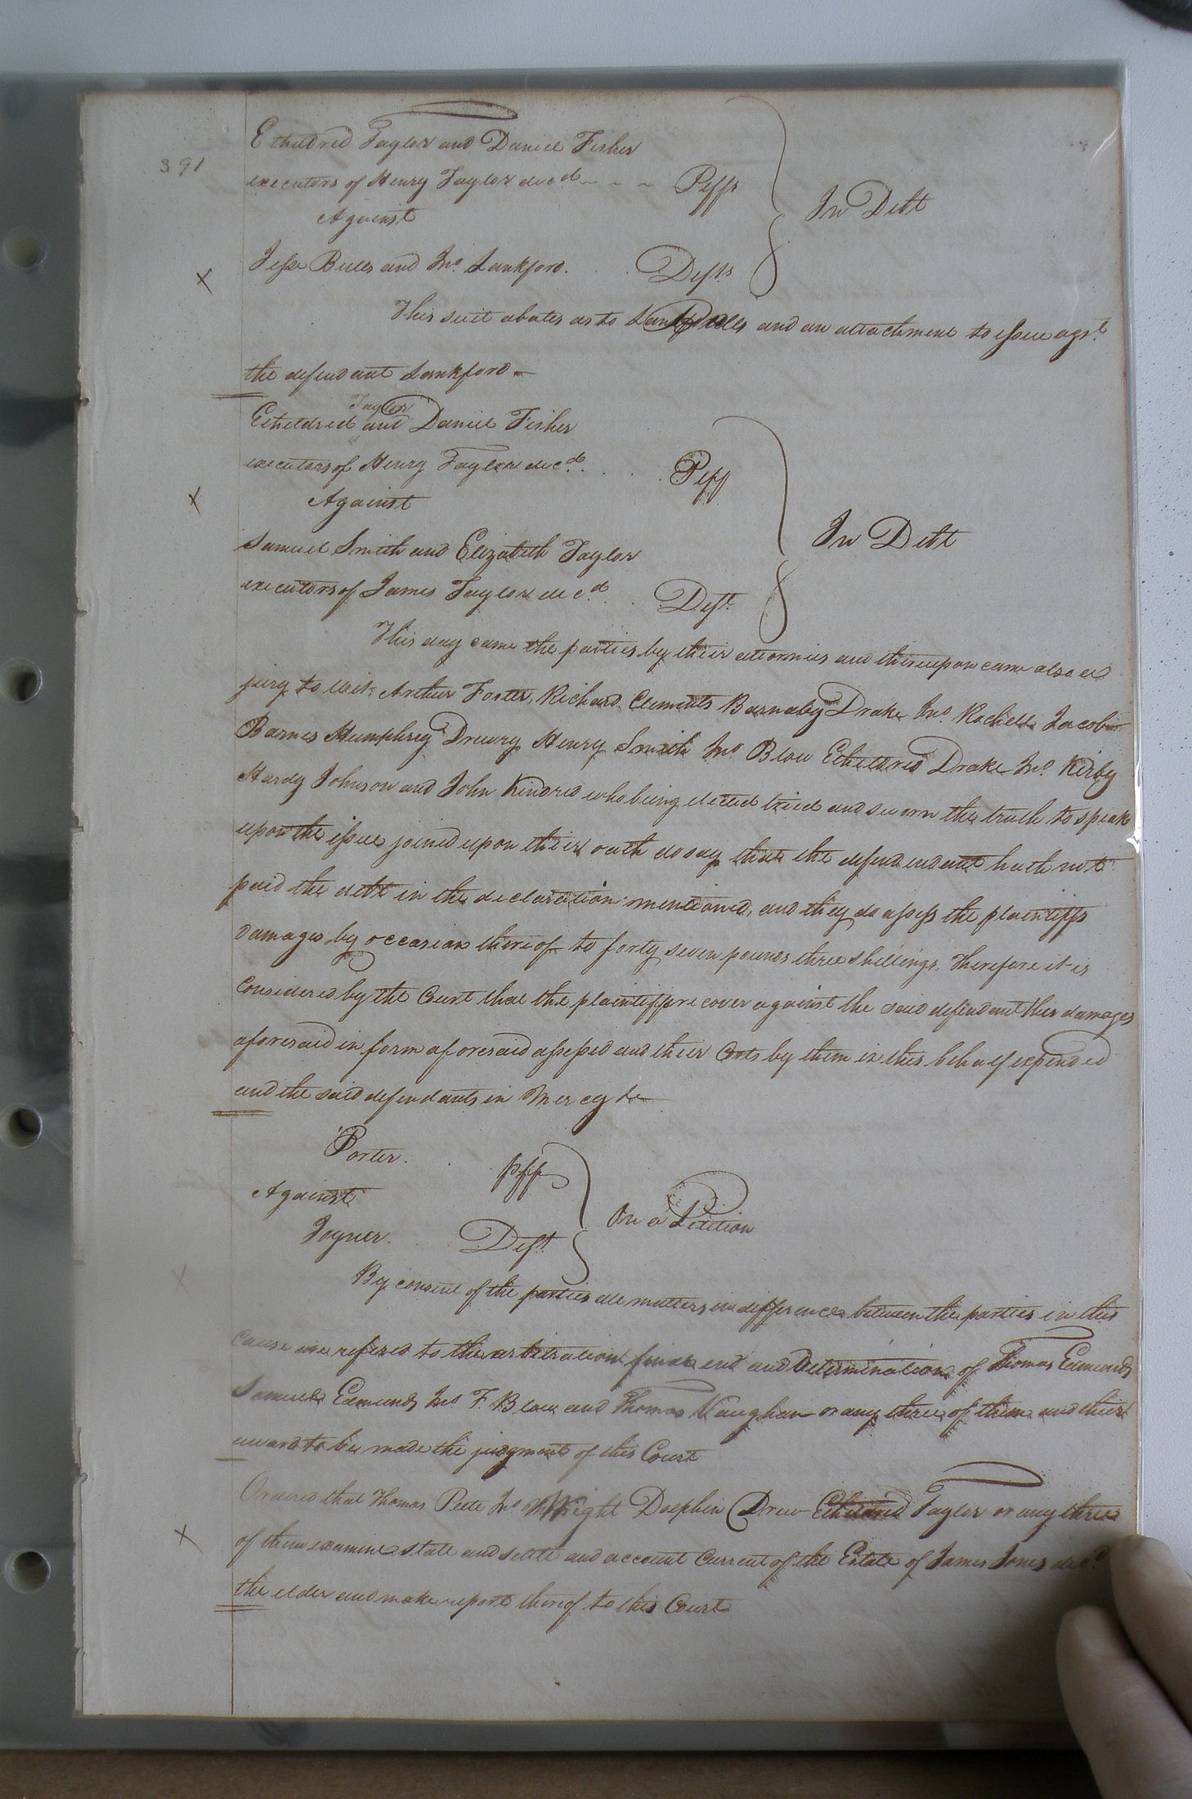 391
Etheldred Taylor and Daniel Fisher
executors of Henry Taylor decd - - - Plffs
Against
In Debt
Jesse Bules and Jno. Lankford. . . Defts
This suit abates as to Bules and an attachment to issue agst.
the defendant Lankford -
Taylor
Etheldred and Daniel Fisher
executors of Henry Taylor decd. . . . Plff
Against
In Debt
Samuel Smith and Elizabeth Taylor
executors of James Taylor decd. . . Deft.
This day came the parties by their attornies and thereupon came also a
jury to wit: Arthur Foster, Richard Clements Barnaby Drake Jno. Rochelle Jacob
Barnes Humphrey Drewry Henry Smith Jno. Blow Etheldred Drake Jno. Kirby
Hardy Johnson and John Kindred who being elected tried and sworn the truth to speak
upon the issue joined upon their oath do say that the defendendant hath not
paid the debt in the declaration mentioned, and they do assess the plaintiffs
damages by occasion thereof to forty seven pounds three shillings. Therefore it is
Considered by the Court that the plaintiff recover against the said defendant their damages
aforesaid in form aforesaid assessed and their Costs by them in this behalf expended
and the said defendants in Mercy &c
Porter. . plff
Against
On a Petition
Joyner. . Deft.
By consent of the parties all matters in difference between the parties in this
cause are refered to the arbitration final end and determination of Thomas Edmunds
Samuel Edmunds Jno. F. Blow and Thomas Vaughan or any three of them and their
award to be made the judgment of this Court
Ordered that Thomas Pete Jno. Wright Dolphin Drew Etheldred Taylor or any three
of them examine state and settle and account Current of the Estate of James Jones decd.
the elder and make report thereof to this Court